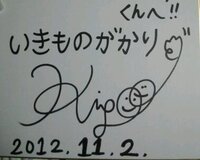 くんへ!!
いきものがかり
2012.11.2.